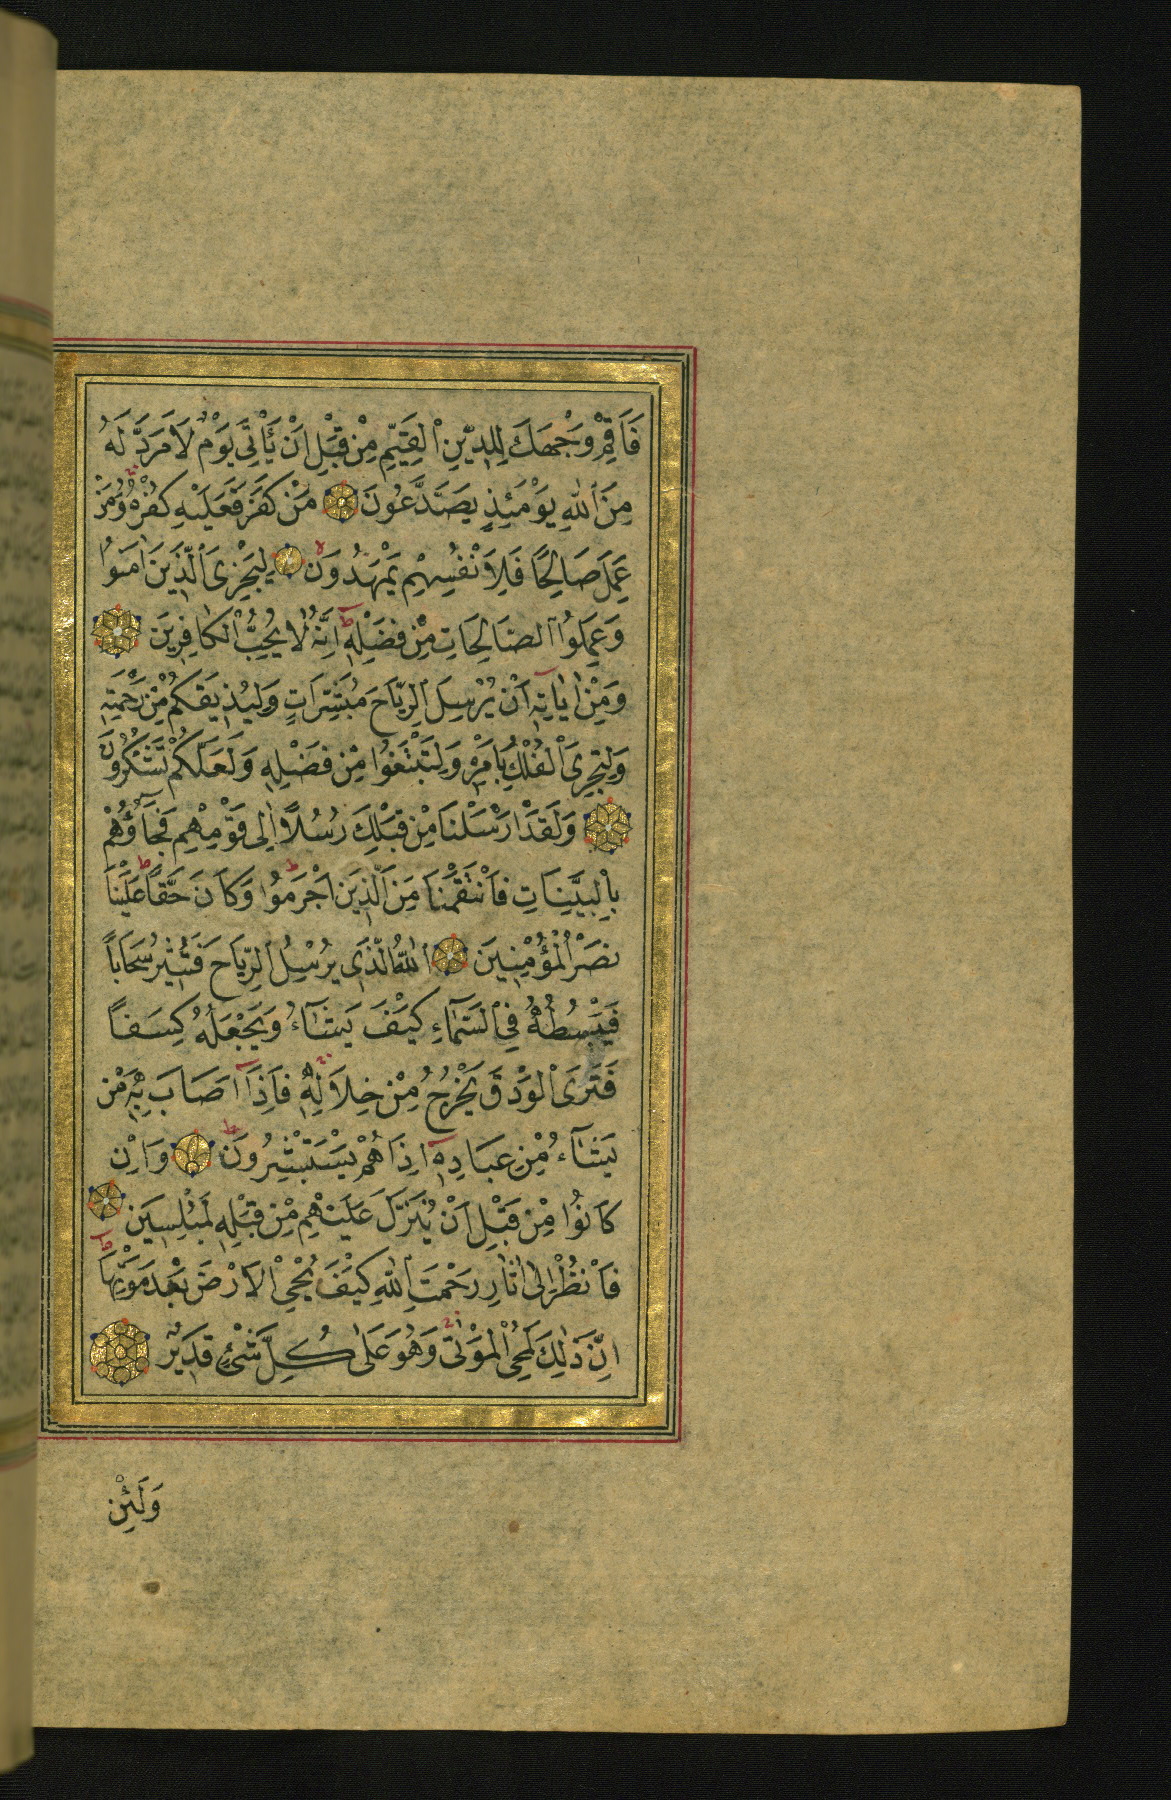 فَاَقِمْ وَجْهَكَ لِلدِّينِ الْقَيِّمِ مِنْ قَبْلِ اَنْ يَأْتِيَ يَوْمٌ لَا مَرَدَّ لَهُ
مِنَ اللّٰهِ يَوْمَئِذٍ يَصَّدَّعُونَ مَنْ كَفَرَ فَعَلَيْهِ كُفْرُهُ وَمَنْ
عَمِلَ صَالِحًا فَلِاَنْفُسِهِمْ يَمْهَدُونَ لِيَجْزِىَ الَّذِينَ اٰمَنُوا
وَعَمِلُوا الصَّالِحَاتِ مِنْ فَضْلِهِ اِنَّهُ لَا يُحِبُّ الْكَافِرِينَ
وَمِنْ اٰيَاتِهِ اَنْ يُرْسِلَ الرِّيَاحَ مُبَشِّرَاتٍ وَلِيُذِيقَكُمْ مِنْ رَحْمَتِهِ
وَلِتَجْرِىَ الْفُلْكُ بِاَمْرِهِ وَلِتَبْتَغُوا مِنْ فَضْلِهِ وَلَعَلَّكُمْ تَشْكُرُونَ
وَلَقَدْ اَرْسَلْنَا مِنْ قَبْلِكَ رُسُلًا اِلٰى قَوْمِهِمْ فَجَآؤُهُمْ
بِالْبَيِّنَاتِ فَانْتَقَمْنَا مِنَ الَّذِينَ اَجْرَمُوا وَكَانَ حَقًّا عَلَيْنَا
نَصْرُ الْمُؤْمِنِينَ اَللّٰهُ الَّذِى يُرْسِلُ الرِّيَاحَ فَتُثِيرُ سَحَابًا
فَيَبْسُطُهُ فِى السَّمَآءِ كَيْفَ يَشَآءُ وَيَجْعَلُهُ كِسَفًا
فَتَرَى الْوَدْقَ يَخْرُجُ مِنْ خِلَالِهِ فَاِذَآ اَصَابَ بِهِ مَنْ
يَشَآءُ مِنْ عِبَادِهِ اِذَا هُمْ يَسْتَبْشِرُونَ وَاِنْ
كَانُوا مِنْ قَبْلِ اَنْ يُنَزَّلَ عَلَيْهِمْ مِنْ قَبْلِهِ لَمُبْلِسِينَ
فَانْظُرْ اِلٰى اٰثَارِ رَحْمَتِ اللّٰهِ كَيْفَ يُحْيِى الْاَرْضَ بَعْدَ مَوْتِهَا
اِنَّ ذٰلِكَ لَمُحْىِ الْمَوْتٰى وَهُوَ عَلٰى كُلِّ شَىْءٍ قَدِيرٌ
وَلَئِنْ